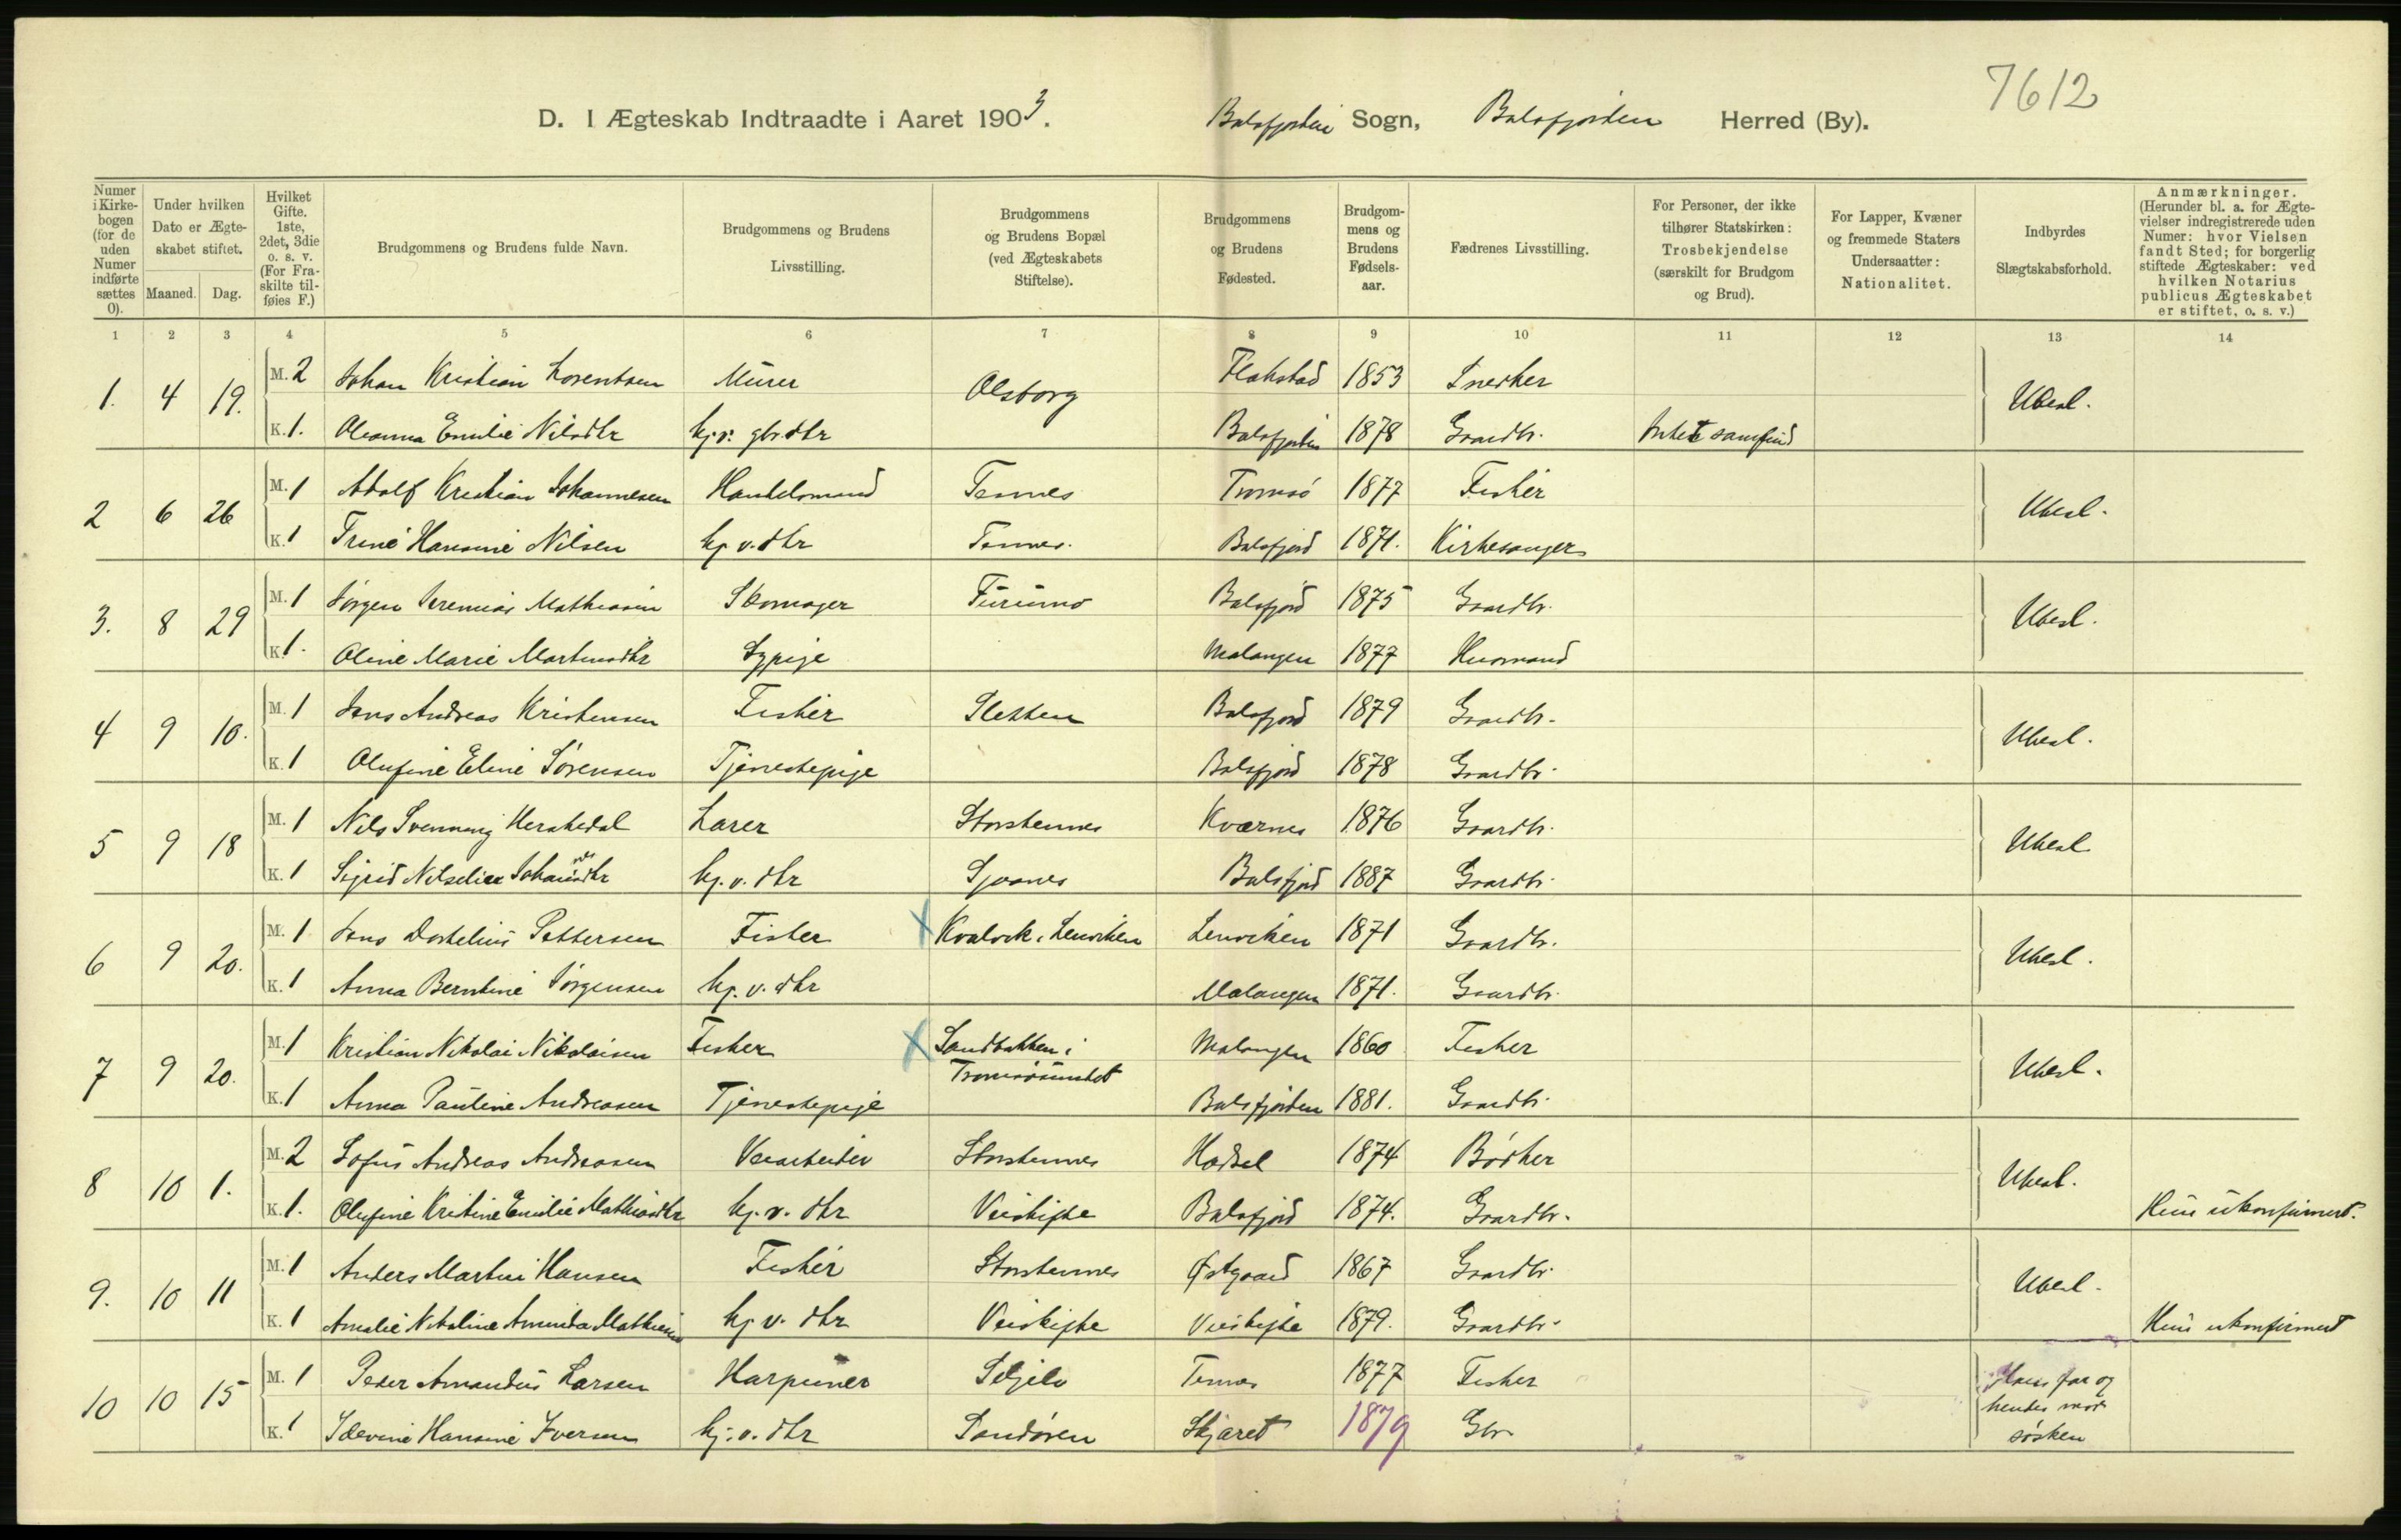 7612
D. I Ægteskab Indtraadte i Aaret 1903. Balsfjorden Sogn, Balsfjorden Herred (By).
Numer i Kirkebogen (for de uden Numer indførte sættes 0).
Under hvilken Dato er Ægteskabet stiftet.
Maaned. Dag.
Hvilket Gifte. 1ste, 2det, 3die o. s. v. (For Fraskilte tilføies F.)
Brudgommens og Brudens fulde Navn.
Brudgommens og Brudens Livsstilling.
Brudgommens og Brudens Bopæl (ved Ægteskabets Stiftelse).
Brudgommens og Brudens Fødested.
Brudgommens og Brudens Fødselsaar.
Fædrenes Livsstilling.
For Personer, der ikke tilhører Statskirken: Trosbekjendelse (særskilt for Brudgom og Brud).
For Lapper, Kvæner og fremmede Staters Undersaatter: Nationalitet.
Indbyrdes Slægtskabsforhold.
Anmærkninger. (Herunder bl. a. for Ægtevielser indregistrerede uden Numer: hvor Vielsen fandt Sted; for borgerlig stiftede Ægteskaber: ved hvilken Notarius publicus Ægteskabet er stiftet, o. s. v.)
1 2 3 4 5 6 7 8 9 10 11 12 13 14
1. 4 19. M. 2 Johan Kristian Lorentsen Murer Olsborg Flakstad 1853 Snedker Ubesl.
K. 1. Oleanna Emilie Nilsdtr hj. v. gbr. dtr Balsfjorden 1878 Gaardbr.
2 6 26 M. 1 Adolf Kristian Johannesen Handelsmand Tennes Tromsø 1877 Fisker Ubesl.
K. 1 Trine Hansine Nilsen hj. v. dtr Tennes. Balsfjord 1871. Kirkesanger
3. 8 29 M. 1 Jørgen Jeremias Mathiasen Skomager Furumo Balsfjord 1875 Gaardbr. Ubesl.
K. 1. Oline Marie Martinsdtr Sypige Malangen 1877 Husmand
4 9 10. M. 1 Jens Andreas Kristensen Fisker Sletten Balsfjord 1879 Gaardbr. Ubesl.
K. 1 Olufine Eline Sørensen Tjenestepige Balsfjord 1878 Gaardbr.
5 9 18 M. 1 Nils Svenning Herskedal Lærer Storstennes Kværnes 1876 Gaardbr. Ubesl.
K. 1 Sigrid Nilseline hj. v. dtr 1887 Gaardbr. Balsfjord
6 9 20. M. 1 Jens Pettersen Fisker Kvalvik i Lenviken Lenviken 1871 Gaardbr. Ubesl.
K. 1 Anna Berntine Jørgensen hj. v. dtr Malangen 1871. Gaardbr.
7 9 20. M. 1 Kristian Nikolai Nikolaisen Fisker Sandbakken i Malangen 1860 Fisker Ubesl.
Tromsøsundet
K. 1 Anna Pauline Andreasen Tjenestepige Balsfjorden 1881. Gaardbr.
8 10 1. M. 2 Sofus Andreas Andreasen Veiarbeider Storstennes Hadsel 1874 Bødker Ubesl.
K. 1. Olufine Kristine Emilie Mathiasdtr hj. v. dtr Veiskifte Balsfjord 1874. Gaardbr. Hun ukonfirmert.
9. 10 11 M. 1 Anders Martin Hansen Fisker Storstennes Østgaard 1867 Gaardbr. Ubesl.
K. 1 Amalie Nikoline Aminda hj. v. dtr Veiskifte Veiskifte 1879. Gaardbr. Hun ukonfirmert
10 10 15 M. 1 Peder Amandus Larsen Harpuner Seljelv Tennes 1877 Fisker Hans far og
hendes mor
K. 1 Hansine Iversen hj. v. dtr Sandøren Skjæret 1879 Gbr. søsken